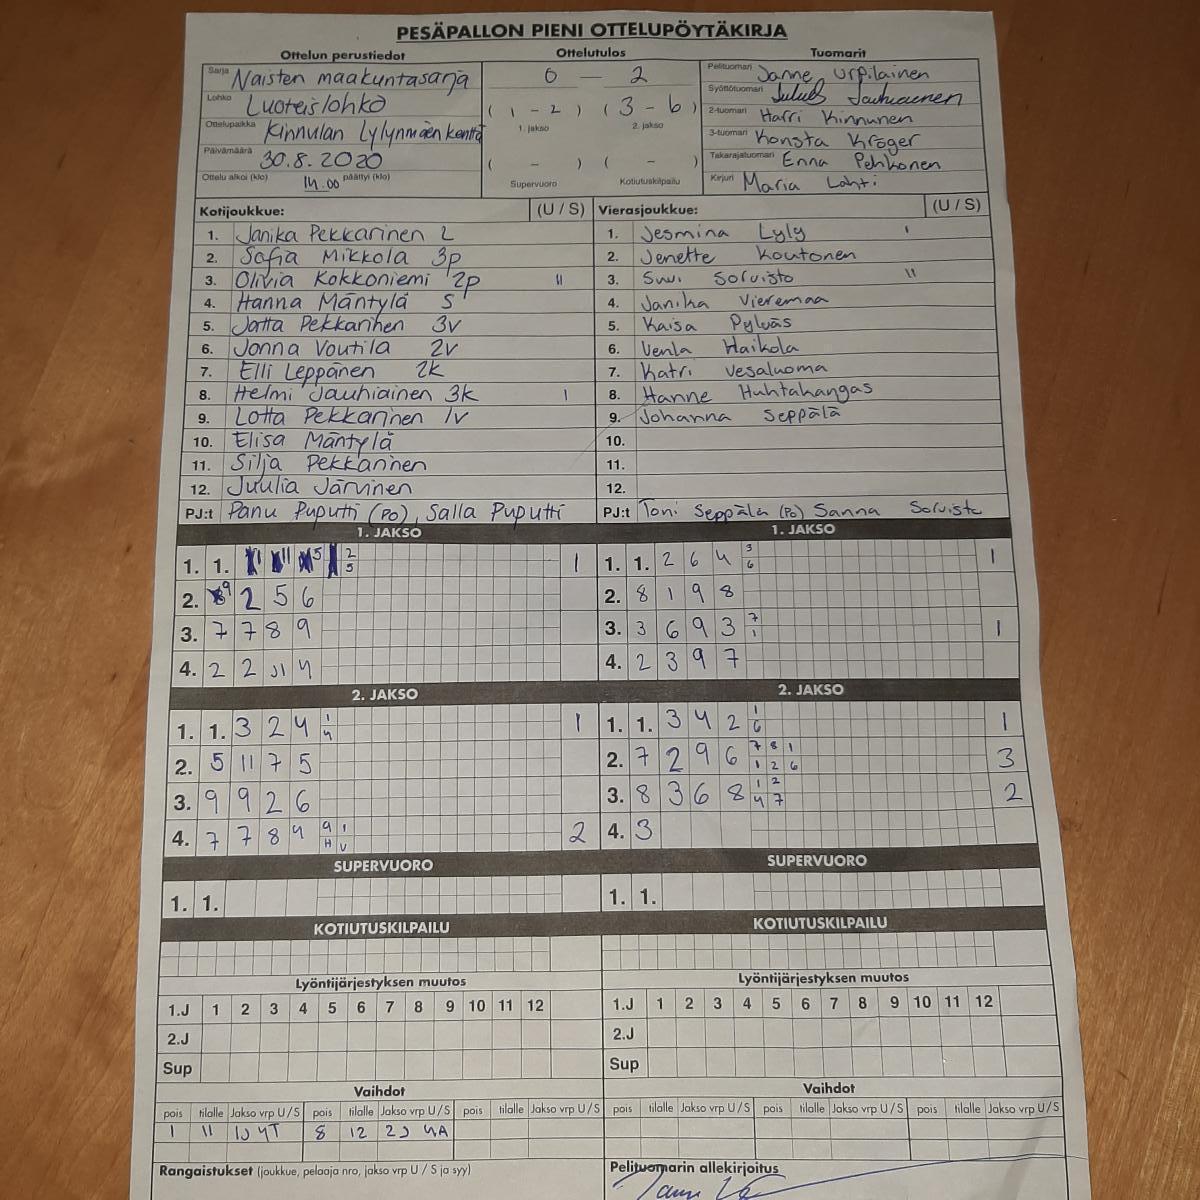 PESÄPALLON PIENI OTTELUPÖYTÄKIRJA
Ottelun perustiedot Ottelutulos Tuomarit
Sarja Naisten maakuntasarja 0 – 2 Pelituomari Janne Urpilainen
Lohko Luoteislohko ( 1 - 2 ) ( 3 - 6 ) Syöttötuomari Jauhiainen
Ottelupaikka Kinnulan Lylynmäen kenttä 1. jakso 2. jakso 2-tuomari Harri Kinnunen
3-tuomari Konsta Kröger
Päivämäärä 30.8.2020 ( - ) ( - ) Takarajatuomari Enna Pehkonen
Ottelu alkoi (klo) 14.00 päättyi (klo) Supervuoro Kotiutuskilpailu Kirjuri Maria Lahti
Kotijoukkue: (U / S) Vierasjoukkue: (U / S)
1. Janika Pekkarinen L 1. Jesmina Lyly I
2. Sofia Mikkola 3p 2. Jenette Koutonen
3. Olivia Kokkoniemi 2p II 3. Suvi Sorvisto II
4. Hanna Mäntylä S 4. Janika Vieremaa
5. Jatta Pekkarinen 3v 5. Kaisa Pylväs
6. Jonna Voutila 2v 6. Venla Haikola
7. Elli Leppänen 2k 7. Katri Vesaluoma
8. Helmi Jauhiainen 3k I 8. Hanne Huhtakangas
9. Lotta Pekkarinen 1v 9. Johanna Seppälä
10. Elisa Mäntylä 10.
11. Silja Pekkarinen 11.
12. Juulia Järvinen 12.
PJ:t Panu Puputti (PO), Salla Puputti PJ:t Toni Seppälä (PO) Sanna Sorvisto
1. JAKSO 1. JAKSO
1. 1. 2 5 1 1. 1. 2 6 4 3 6 1
2. 9 2 5 6 2. 8 1 9 8
3. 7 7 8 9 3. 3 6 9 3 7 1 1
4. 2 2 11 4 4. 2 3 9 7
2. JAKSO 2. JAKSO
1. 1. 3 2 4 1 4 1 1. 1. 3 4 2 1 6 1
2. 5 11 7 5 2. 7 2 9 6 7 8 1 1 2 6 3
3. 9 9 2 6 3. 8 3 6 8 1 2 4 7 2
4. 7 7 8 9 9 1 H V 2 4. 3
SUPERVUORO SUPERVUORO
1. 1. 1. 1.
KOTIUTUSKILPAILU KOTIUTUSKILPAILU
Lyöntijärjestyksen muutos Lyöntijärjestyksen muutos
1.J 1 2 3 4 5 6 7 8 9 10 11 12 1.J 1 2 3 4 5 6 7 8 9 10 11 12
2.J 2.J
Sup Sup
Vaihdot Vaihdot
pois tilalle Jakso vrp U / S pois tilalle Jakso vrp U / S pois tilalle Jakso vrp U / S pois tilalle Jakso vrp U / S pois tilalle Jakso vrp U / S pois tilalle Jakso vrp U / S
1 11 1J 4T 8 12 2J 4A
Rangaistukset (joukkue, pelaaja nro, jakso vrp U / S ja syy) Pelituomarin allekirjoitus